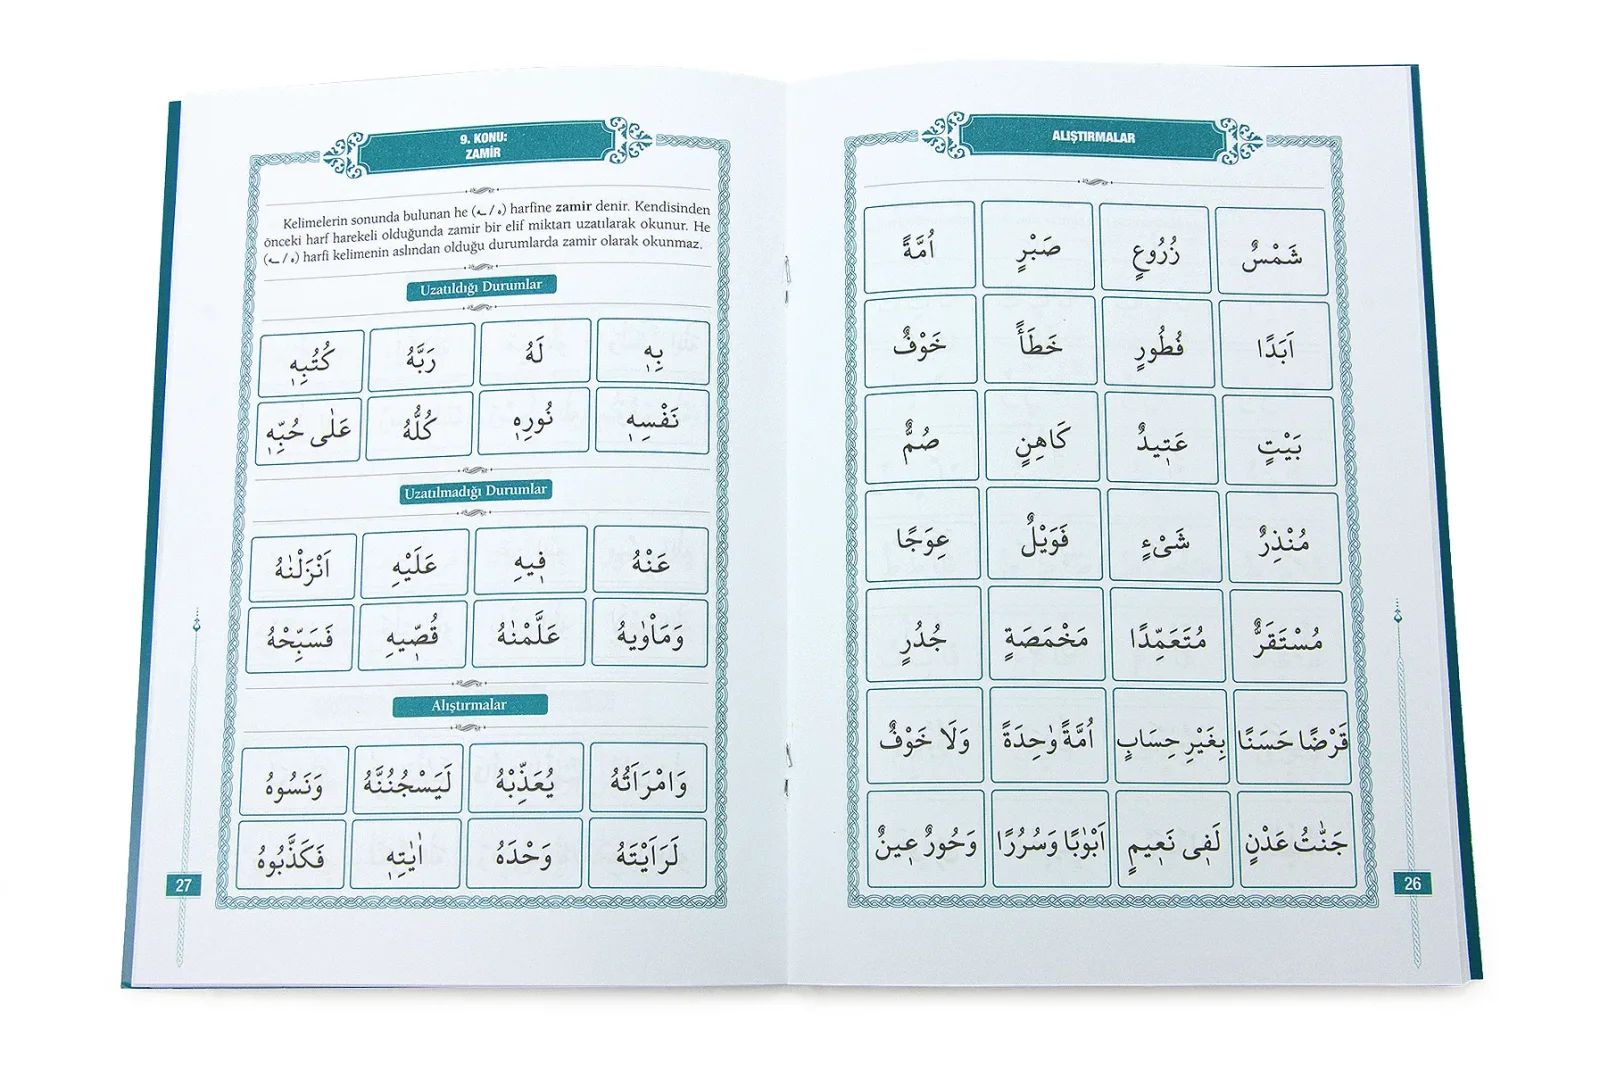 ALIŞTIRMALAR
شَمْسٌ زُرُوعٍ صَبْرٍ اُمَّةً
اَبَدًا فُطُورٍ خَطَأً خَوْفٌ
بَيْتٍ عَتٖيدٌ كَاهِنٍ صُمٌّ
مُنْذِرٌ شَىْءٍ فَوَيْلٌ عِوَجًا
مُسْتَقَرٌّ مُتَعَمِّدًا مَخْمَصَةٍ جُدُرٍ
قَرْضًا حَسَنًا بِغَيْرِ حِسَابٍ اُمَّةً وٰحِدَةً وَلَا خَوْفٌ
جَنّٰتُ عَدْنٍ لَفٖى نَعٖيمٍ اَبْوٰبًا وَسُرُرًا وَحُورٌ عٖينٌ
26
9. KONU:
ZAMİR
Kelimelerin sonunda bulunan he (ه / ـه) harfine zamir denir. Kendisinden
önceki harf harekeli olduğunda zamir bir elif miktarı uzatılarak okunur. He
(ه / ـه) harfi kelimenin aslından olduğu durumlarda zamir olarak okunmaz.
Uzatıldığı Durumlar
بِهٖ لَهُ رَبَّهُ كُتُبِهٖ
نَفْسِهٖ نُورِهٖ كُلُّهُ عَلٰى حُبِّهٖ
Uzatılmadığı Durumlar
عَنْهُ فٖيهِ عَلَيْهِ اَنْزَلْنٰهُ
وَمَأْوٰيهُ عَلَّمْنٰهُ قُصّٖيهِ فَسَبِّحْهُ
Alıştırmalar
وَامْرَاَتُهُ يُعَذِّبْهُ لَيَسْجُنُنَّهُ وَنَسُوهُ
لَرَاَيْتَهُ وَحْدَهُ اٰيٰتِهٖ فَكَذَّبُوهُ
27